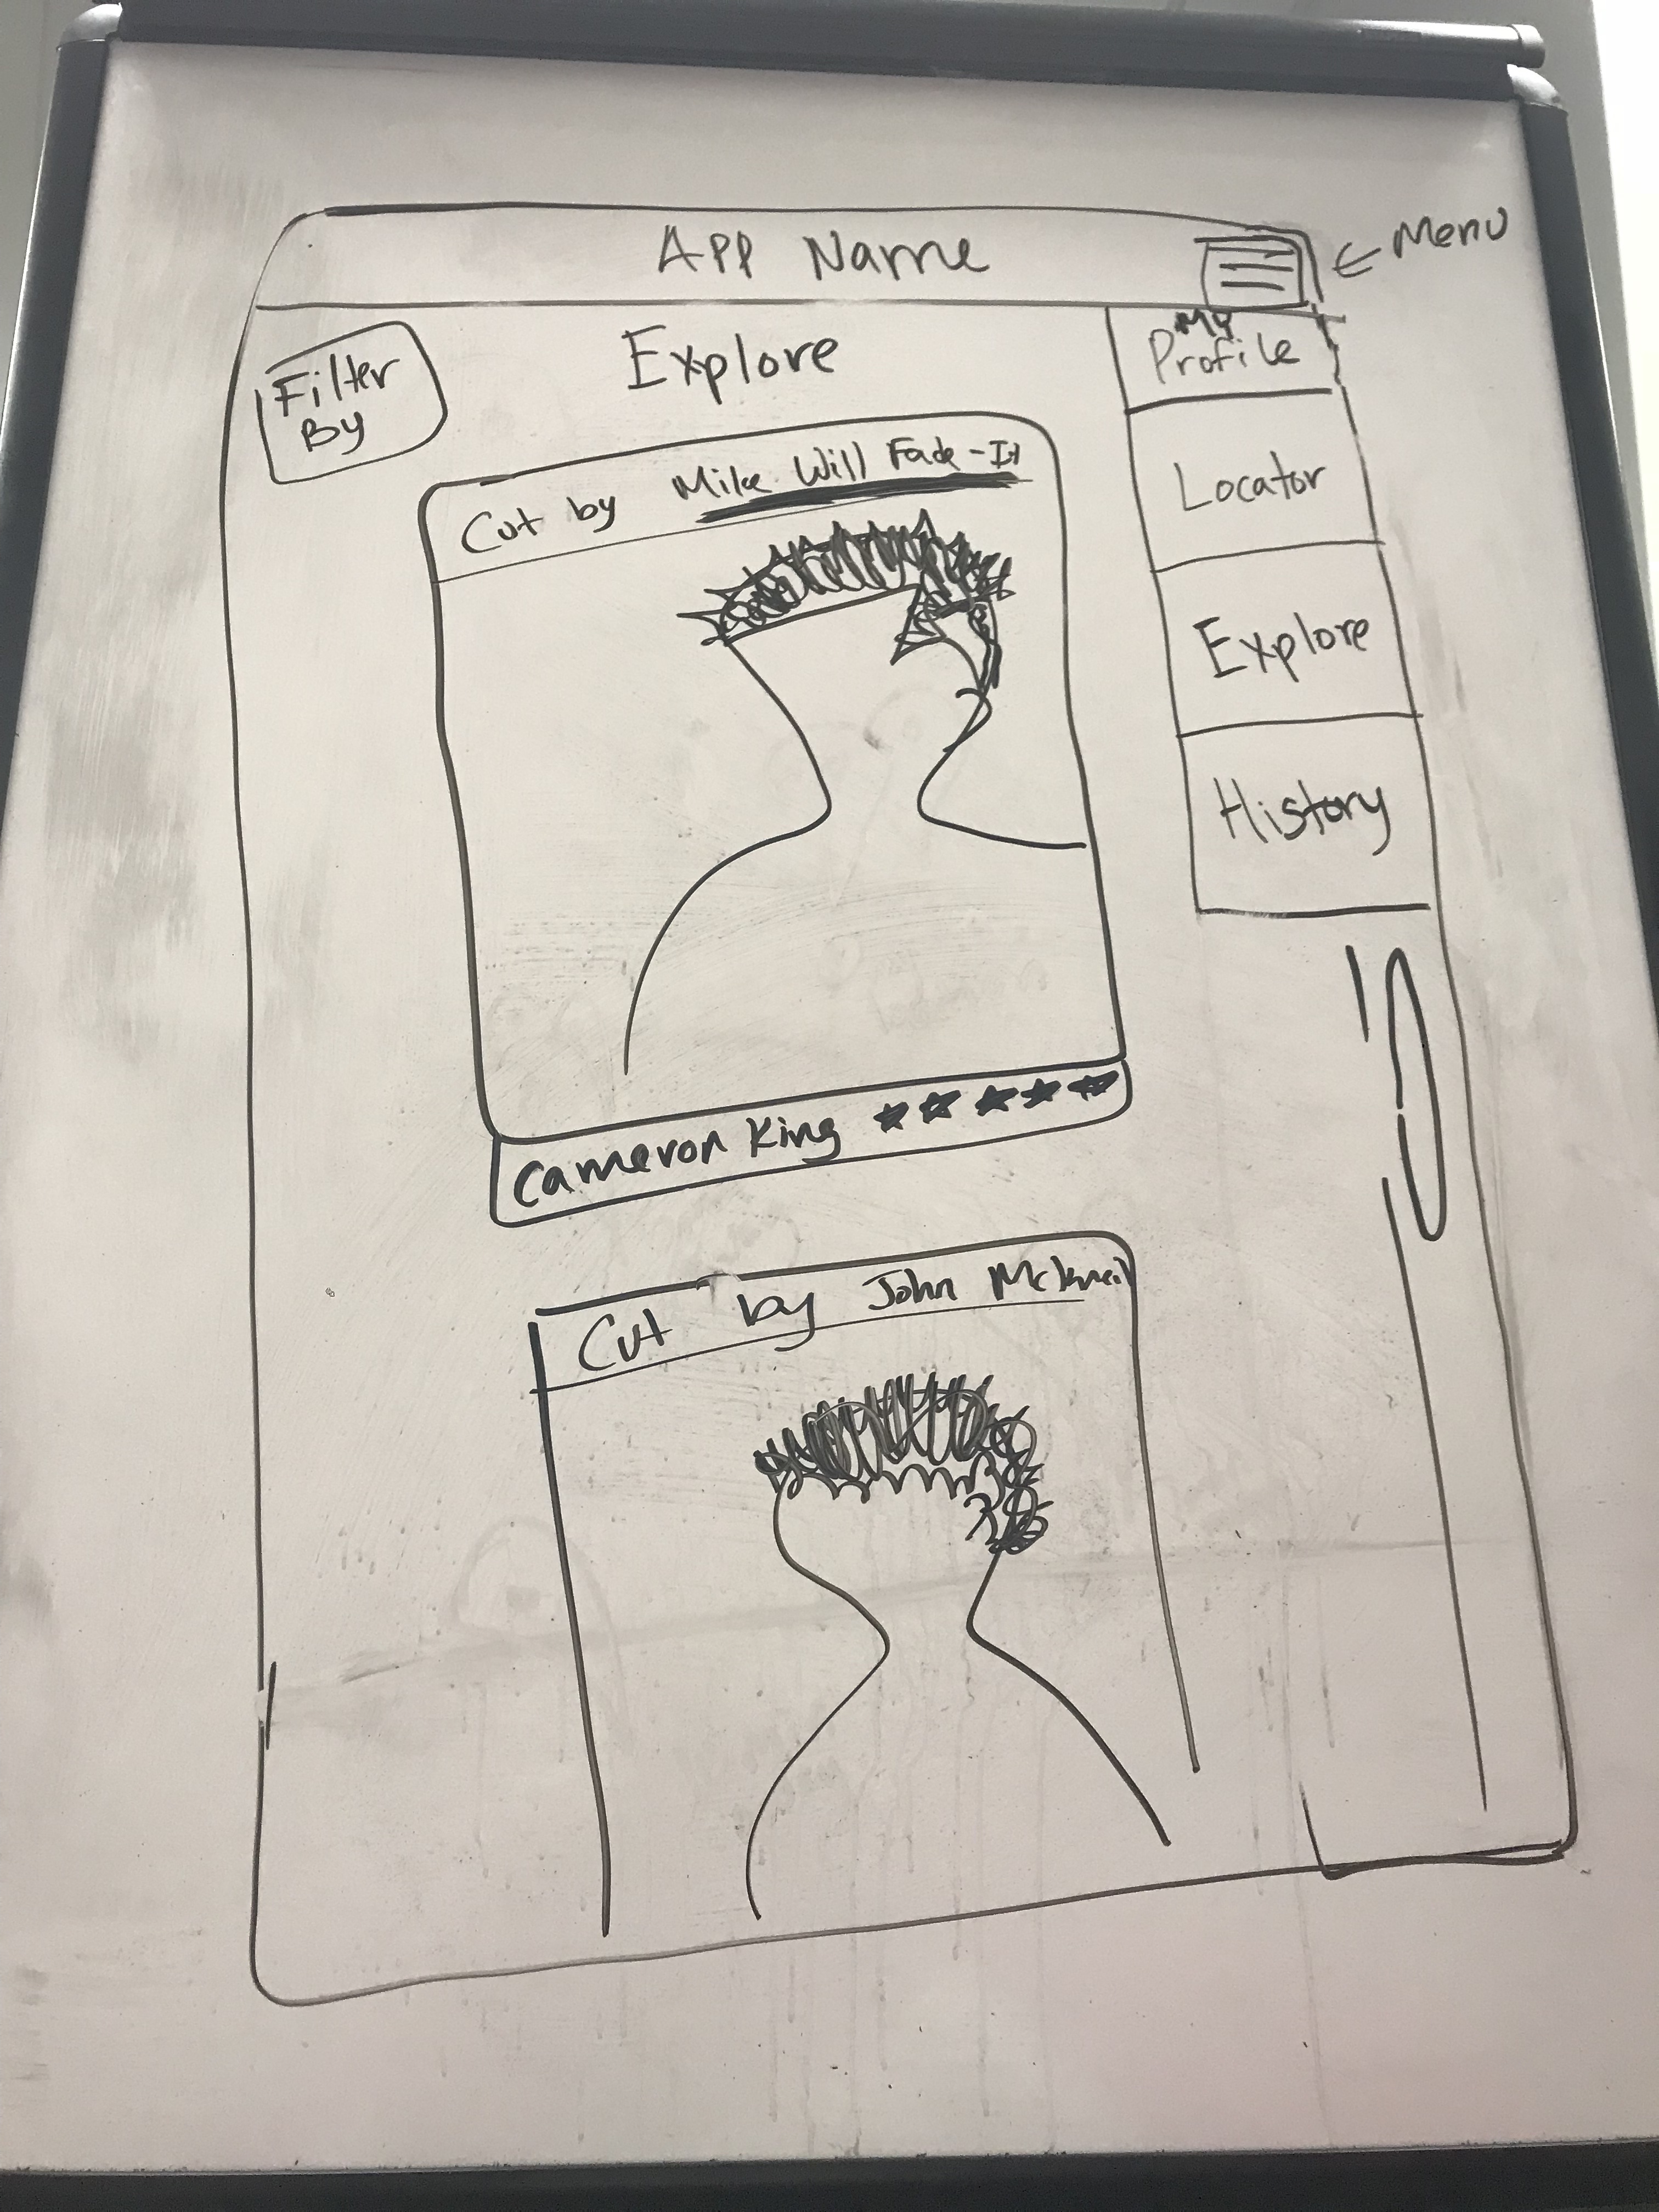 App Name
← Menu
Filter
By
Explore
My
Profile
Locator
Explore
History
Cut by Mike Will Fade-It
Cameron King ★★★★★
Cut by John McKneil